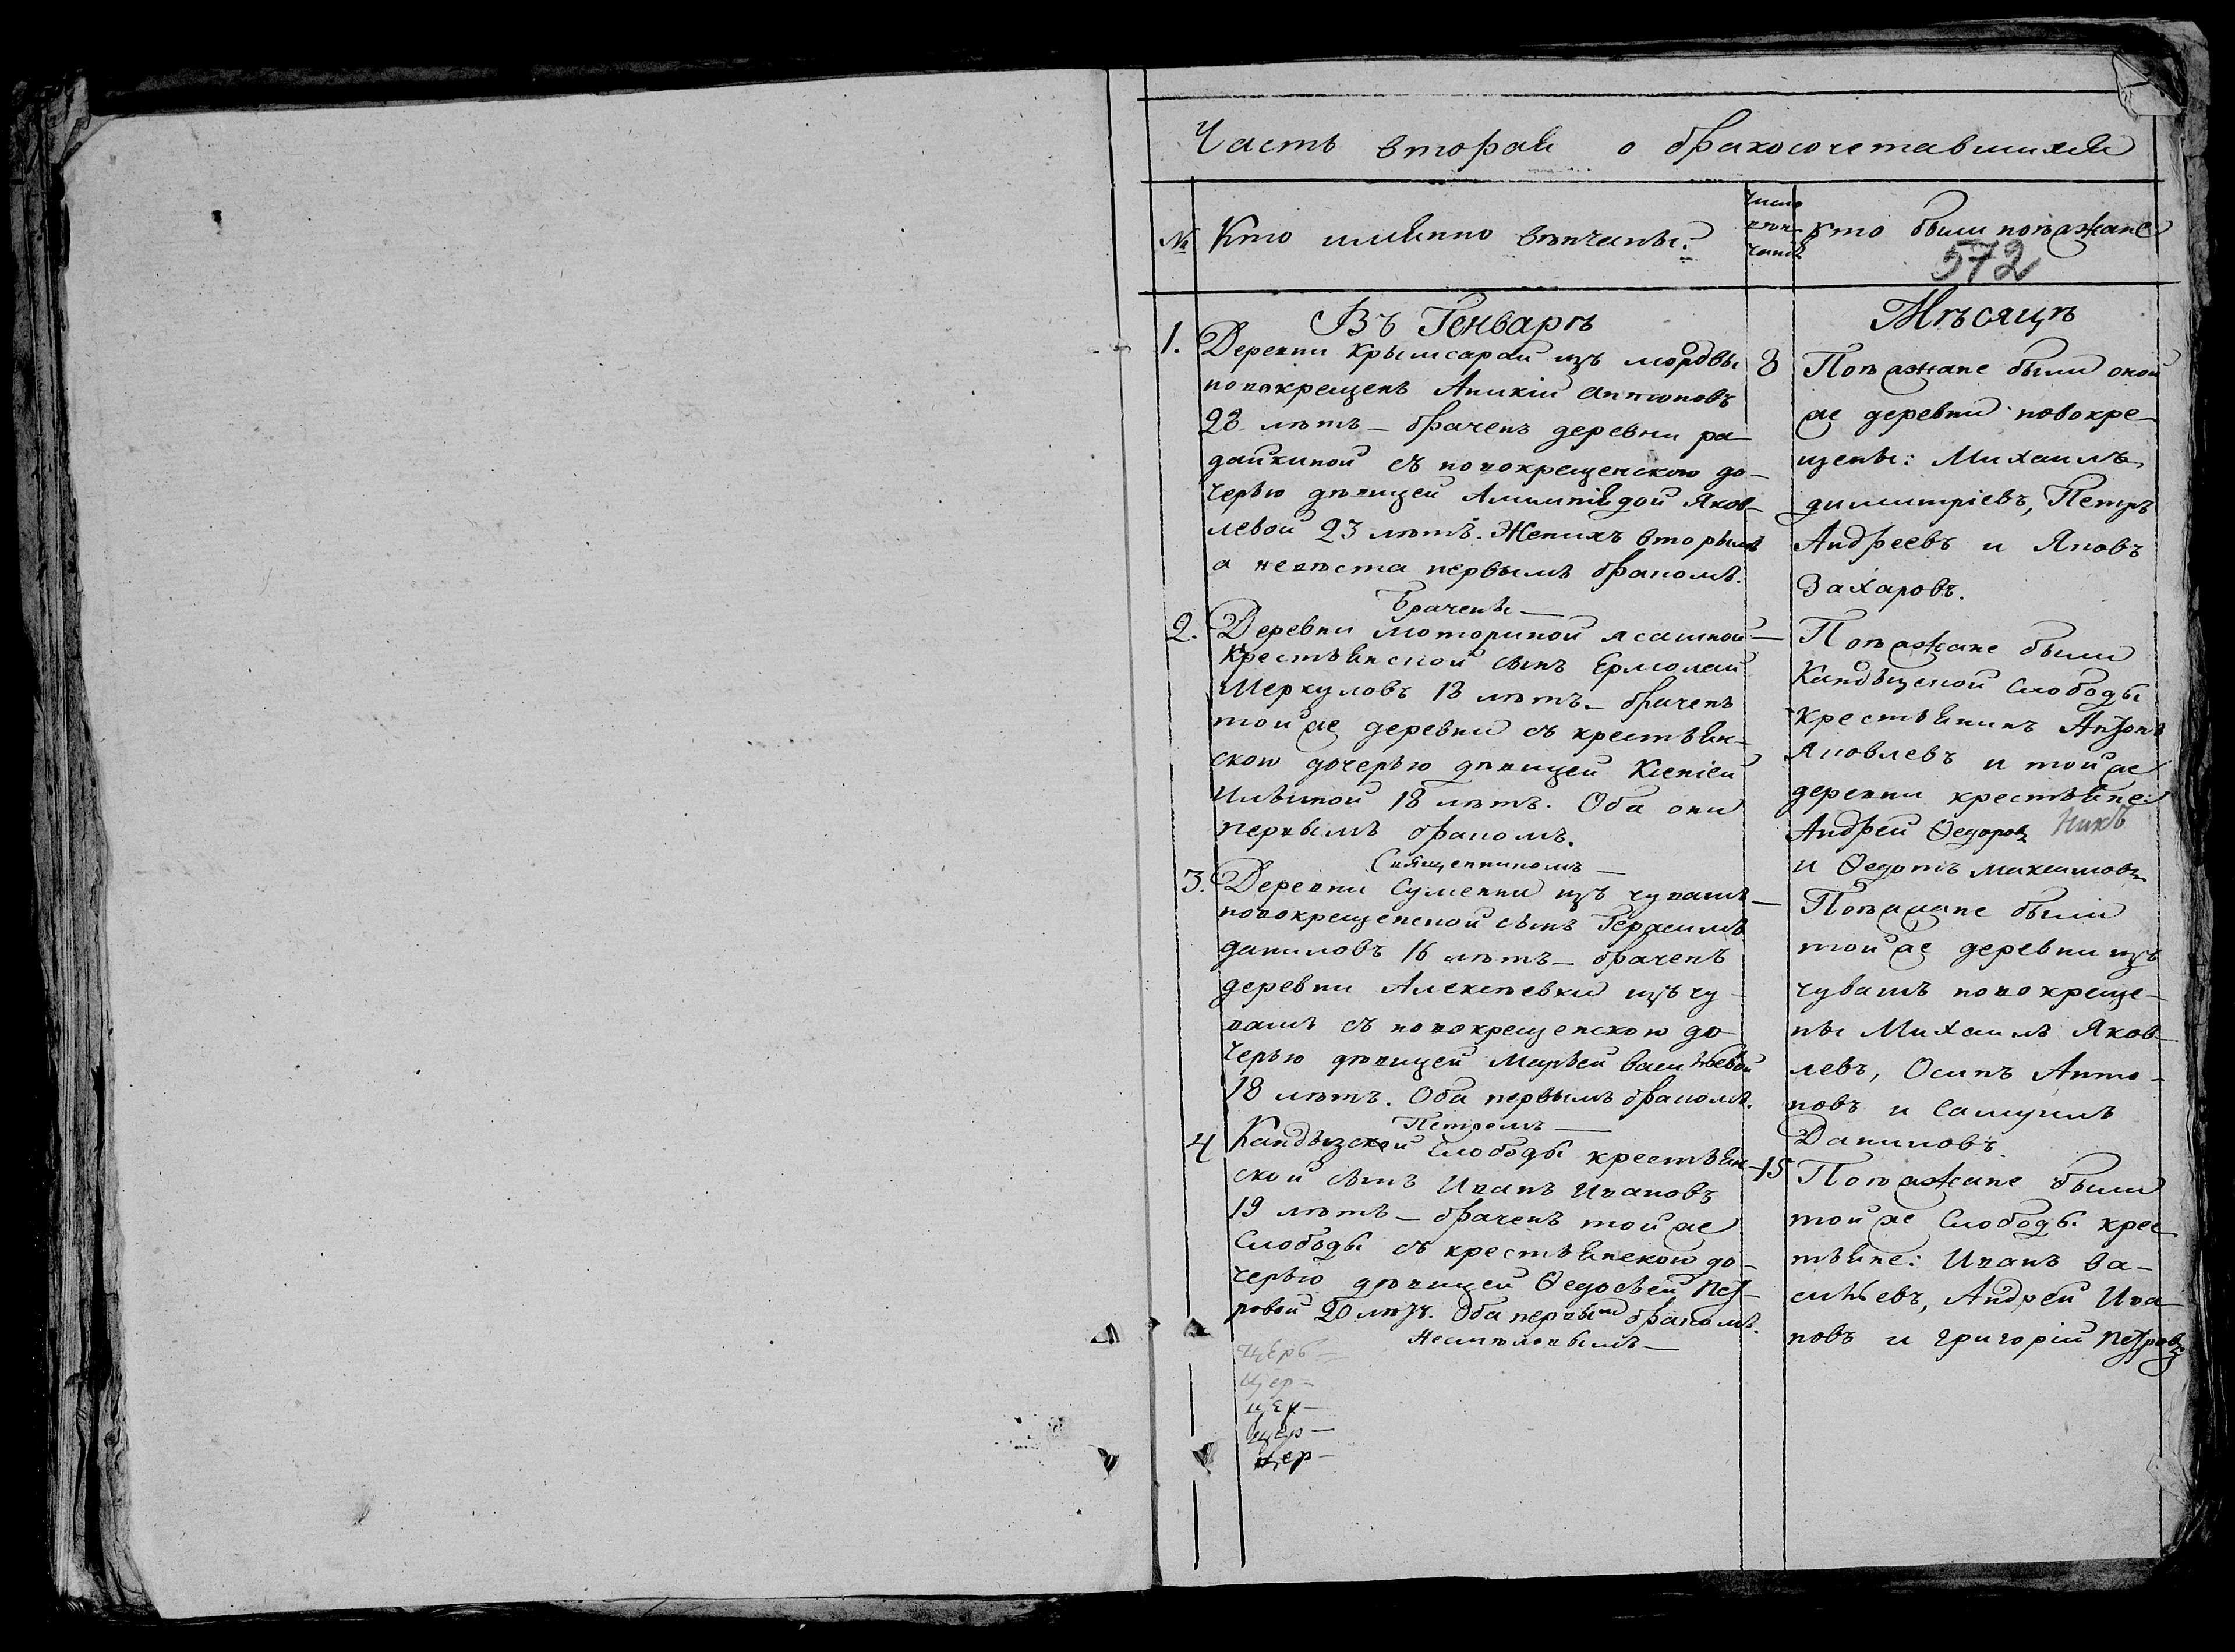 Часть вторая о бракосочетавшихся
№ Кто именно вѣнчаны? Число вѣнчанія кто были поѣзжане
572
Въ Генварѣ Мѣсяцѣ
1. Деревни Крымсарай изъ мордвы
новокрещенъ Аникій Антоновъ
28 лѣтъ – браченъ деревни ра-
дайкиной съ новокрещенскою до-
черью дѣвицей Яков-
левой 23 лѣтъ. Женихъ вторымъ
а невѣста первымъ бракомъ.
Брачены —
8 Поѣзжане были оной
же деревни новокре-
щены: Михаилъ
димитріевъ, Петръ
Андреевъ и Яковъ
Захаровъ.
2. Деревни моториной ясашной
крестьянской сынъ Ермолай
Меркуловъ 18 лѣтъ – браченъ
той же деревни съ крестьян-
скою дочерью дѣвицей Ксеніей
Ильиной 18 лѣтъ. Оба они
первымъ бракомъ.
Священникомъ —
— Поѣзжане были
Кандызской Слободы
крестьянинъ Антонъ
Яковлевъ и той же
деревни крестьяне:
Андрей Ѳедоровъ
и Ѳедотъ максимовъ
3. Деревни Суменки изъ чувашъ
новокрещенской сынъ Герасимъ
даниловъ 16 лѣтъ – браченъ
деревни Алексѣевки изъ чу-
вашъ съ новокрещенскою до-
черью дѣвицей Марьей васильевой
18 лѣтъ. Оба первымъ бракомъ.
Петромъ —
— Поѣзжане были
той же деревни изъ
чувашъ новокреще-
ны Михаилъ Яков-
левъ, Осипъ Анто-
новъ и Самуилъ
Даниловъ.
4 Кандызской Слободы крестьян-
ской сынъ Иванъ Ивановъ
19 лѣтъ – браченъ той же
Слободы съ крестьянскою до-
черью дѣвицей Ѳедосьей Пет-
ровой 20 лѣтъ. Оба первымъ бракомъ.
Несмѣловымъ —
15 Поѣзжане были
той же Слободы крес-
тьяне: Иванъ ва-
сильевъ, Андрей Ива-
новъ и григорій петровъ
церь –
цер –
цер –
цер –
цер –